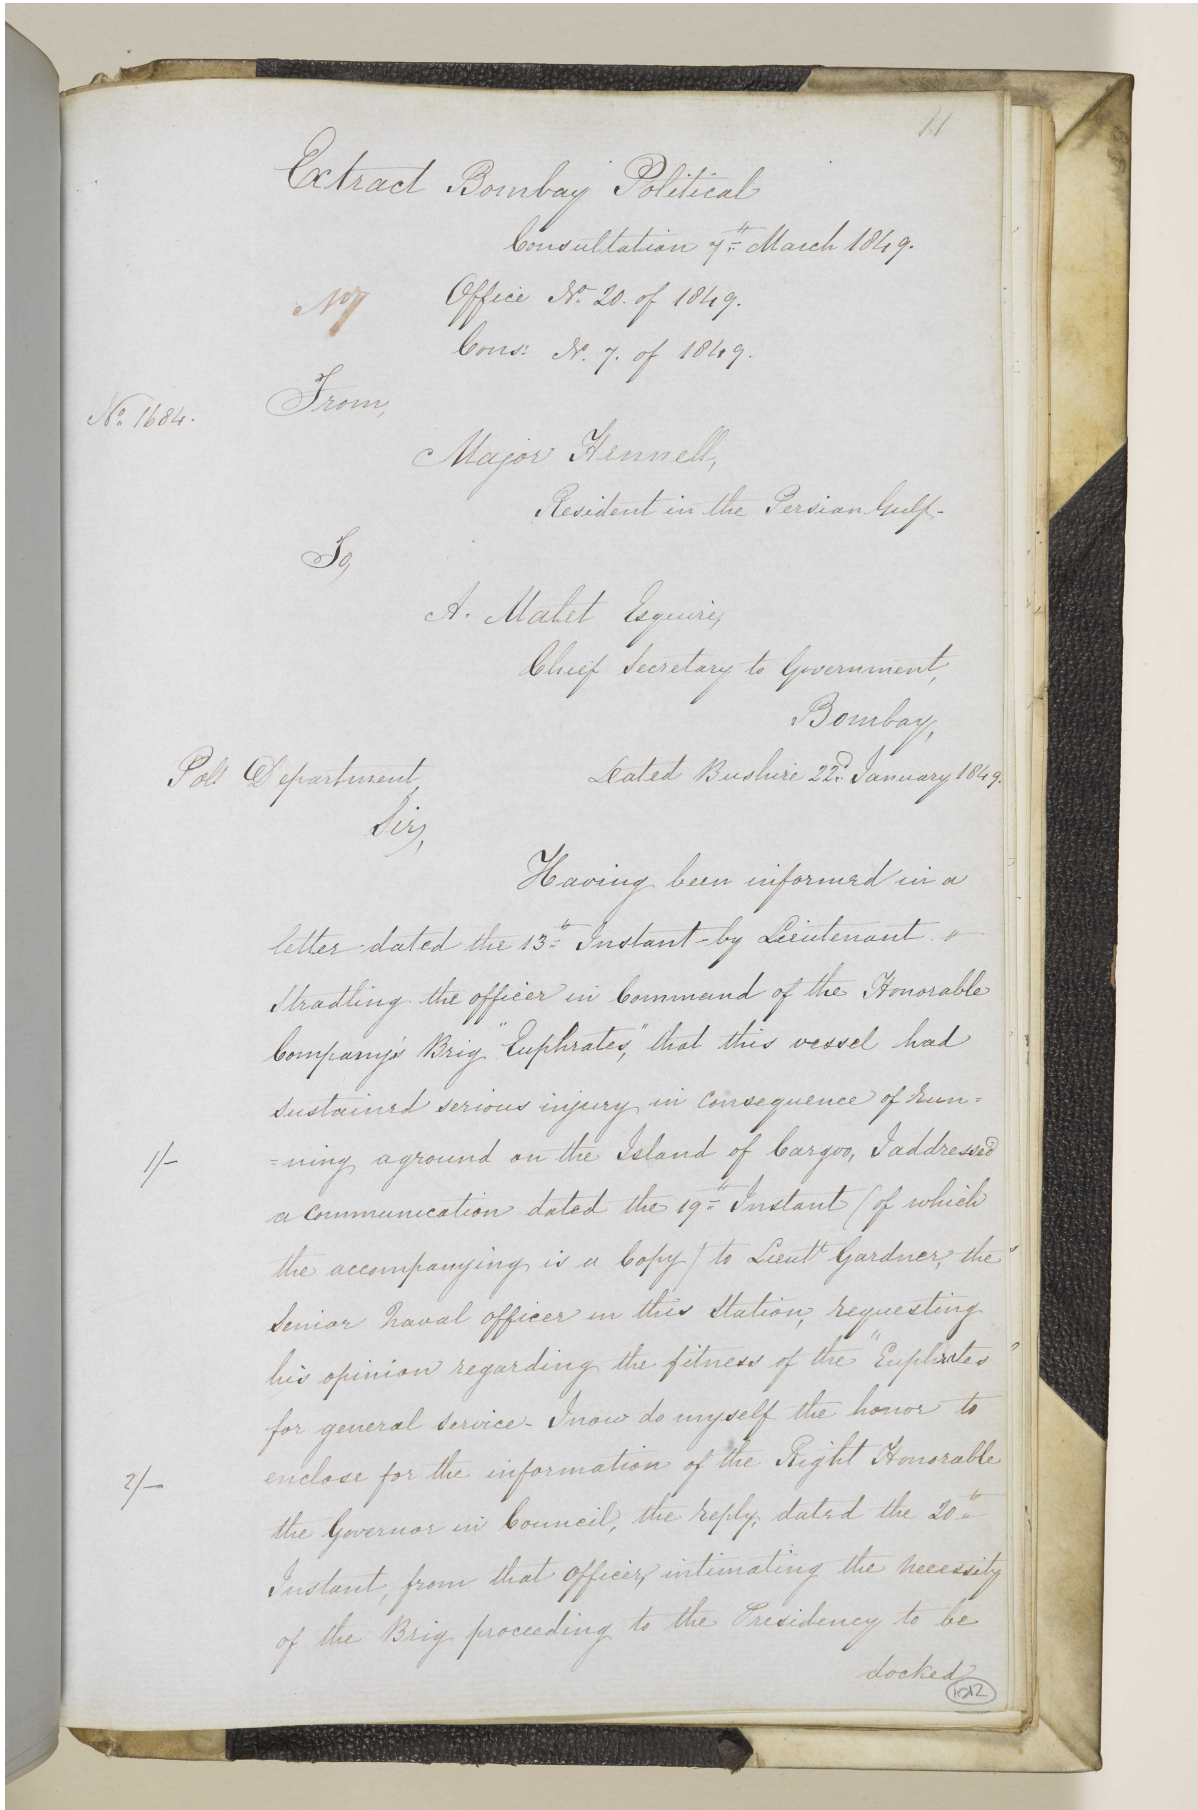 11
Extract Bombay Political
Consultation 7th March 1849.
No 7
Office No. 20. of 1849.
Cons: No. 7. of 1849.
No. 1684.
From,
Major Hennell,
Resident in the Persian Gulf.
To,
A. Malet Esquire,
Chief Secretary to Government,
Bombay,
Poll Department
Dated Bushire 22d. January 1849.
Sir,
Having been informed in a
letter dated the 13th Instant by Lieutenant
Stradling the officer in Command of the Honorable
Company's Brig "Euphrates," that this vessel had
sustained serious injury in consequence of run=
1/-
=ning aground on the Island of Cargoo, I addressed
a communication dated the 19th Instant (of which
the accompanying is a Copy) to Lieutt Gardner, the
Senior Naval officer in this Station, requesting
his opinion regarding the fitness of the "Euphrates"
for general service - I now do myself the honor to
2/-
enclose for the information of the Right Honorable
the Governor in Council, the reply, dated the 20th
Instant, from that officer, intimating the necessity
of the Brig proceeding to the Presidency to be
docked